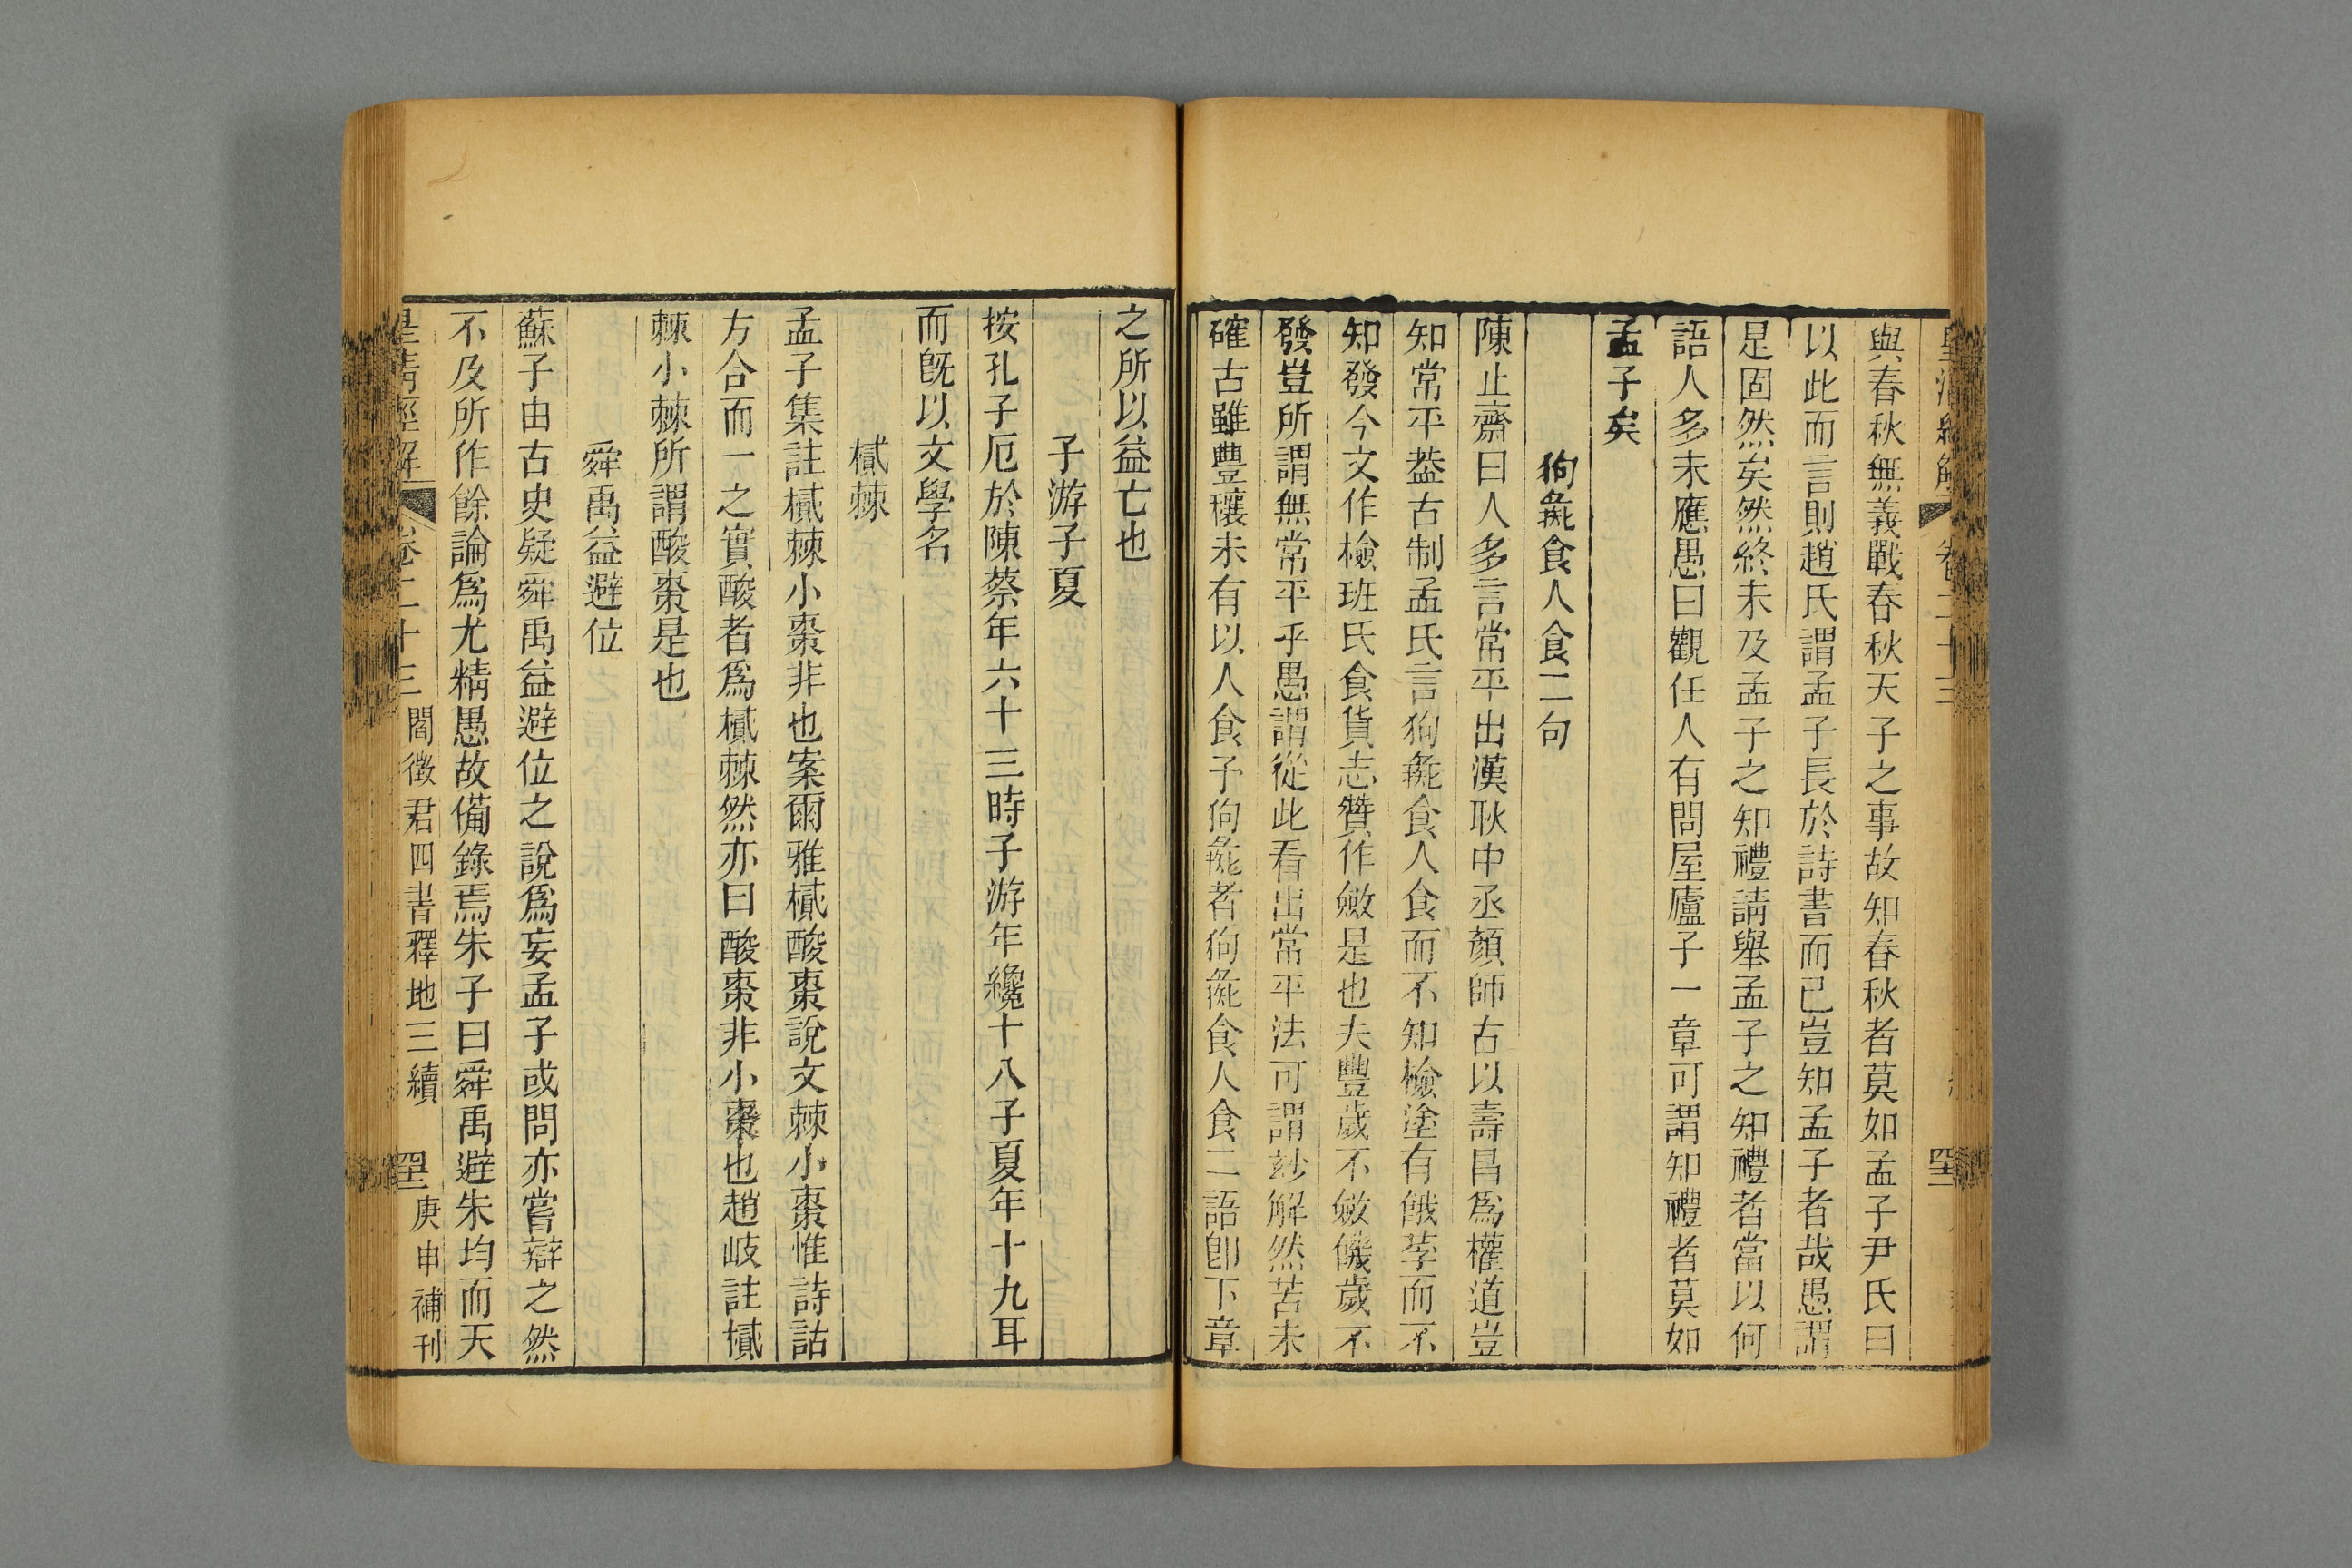 皇清經解 卷二十三
與春秋無義戰春秋天子之事故知春秋者莫如孟子尹氏曰
以此而言則趙氏謂孟子長於詩書而已豈知孟子者哉愚謂
是固然矣然終未及孟子之知禮請舉孟子之知禮者當以何
語人多未應愚曰觀任人有問屋廬子一章可謂知禮者莫如
孟子矣
狗彘食人食二句
陳止齋曰人多言常平出漢耿中丞顏師古以壽昌爲權道豈
知常平葢古制孟氏言狗彘食人食而不知檢塗有餓莩而不
知發今文作檢班氏食貨志贊作斂是也夫豐歲不斂饑歲不
發豈所謂無常平乎愚謂從此看出常平法可謂玅解然苦未
確古雖豐穰未有以人食予狗彘者狗彘食人食二語卽下章
之所以益亡也
子游子夏
按孔子厄於陳蔡年六十三時子游年纔十八子夏年十九耳
而旣以文學名
樲棘
孟子集註樲棘小棗非也案爾雅樲酸棗說文棘小棗惟詩詁
方合而一之實酸者爲樲棘然亦曰酸棗非小棗也趙岐註樲
棘小棘所謂酸棗是也
舜禹益避位
蘇子由古史疑舜禹益避位之說爲妄孟子或問亦嘗辯之然
不及所作餘論爲尤精愚故備錄焉朱子曰舜禹避朱均而天
皇清經解 卷二十三 閻徵君四書釋地三續 庚申補刊